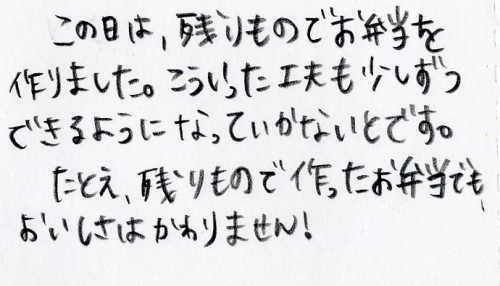 この日は,残りものでお弁当を
作りました。こういった工夫も少しずつ
できるようになっていかないとです。
たとえ,残りもので作ったお弁当でも,
おいしさはかわりません!